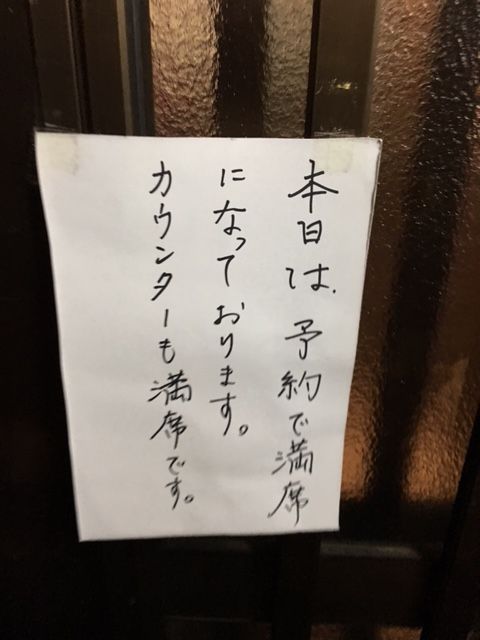 本日は、予約で満席
になっております。
カウンターも満席です。